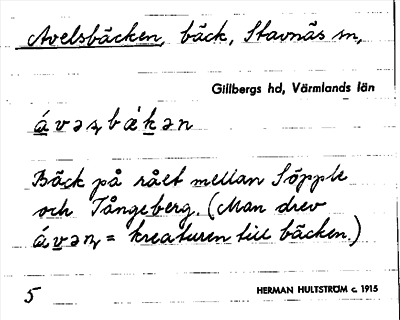 Avelsbäcken, bäck, Stavnäs sn,
Gillbergs hd, Värmlands län
ávəʂbäkən
Bäck på rået mellan Söpple
och Tångeberg. (Man drev
ávəɳ = kreaturen till bäcken.)
5 HERMAN HULTSTRÖM c. 1915